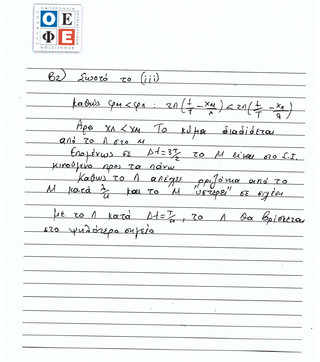 ΟΕ
ΦΕ
Β2) Σωστό το (iii)
καθώς φΜ < φΛ : 2π(t/T - xΜ/λ) < 2π(t/T - xΛ/λ)
Άρα xΛ < xΜ. Το κύμα διαδίδεται
από το Λ στο Μ
Επομένως σε Δt=3T/2 το Μ είναι στο Θ.Ι.
κινούμενο προς τα πάνω
Καθώς το Λ απέχει οριζόντια από το
Μ κατά λ/4 και το Μ "υστερεί" σε σχέση
με το Λ κατά Δt=T/4, το Λ θα βρίσκεται
στο ψηλότερο σημείο